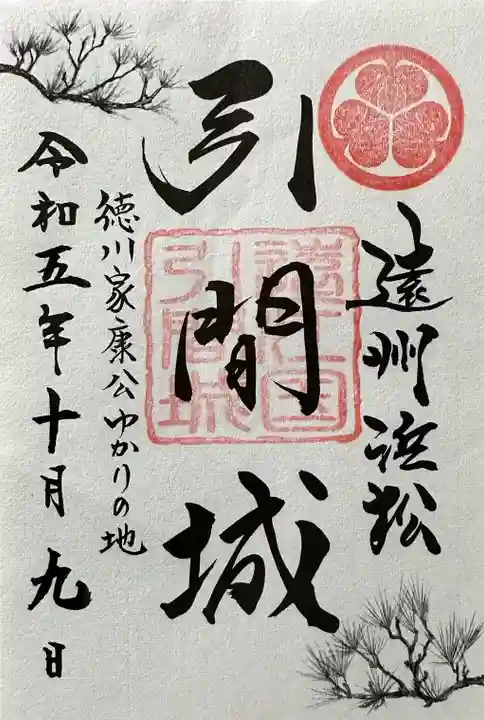 遠州浜松
引間城
遠江国
引間城
徳川家康公ゆかりの地
令和五年十月九日